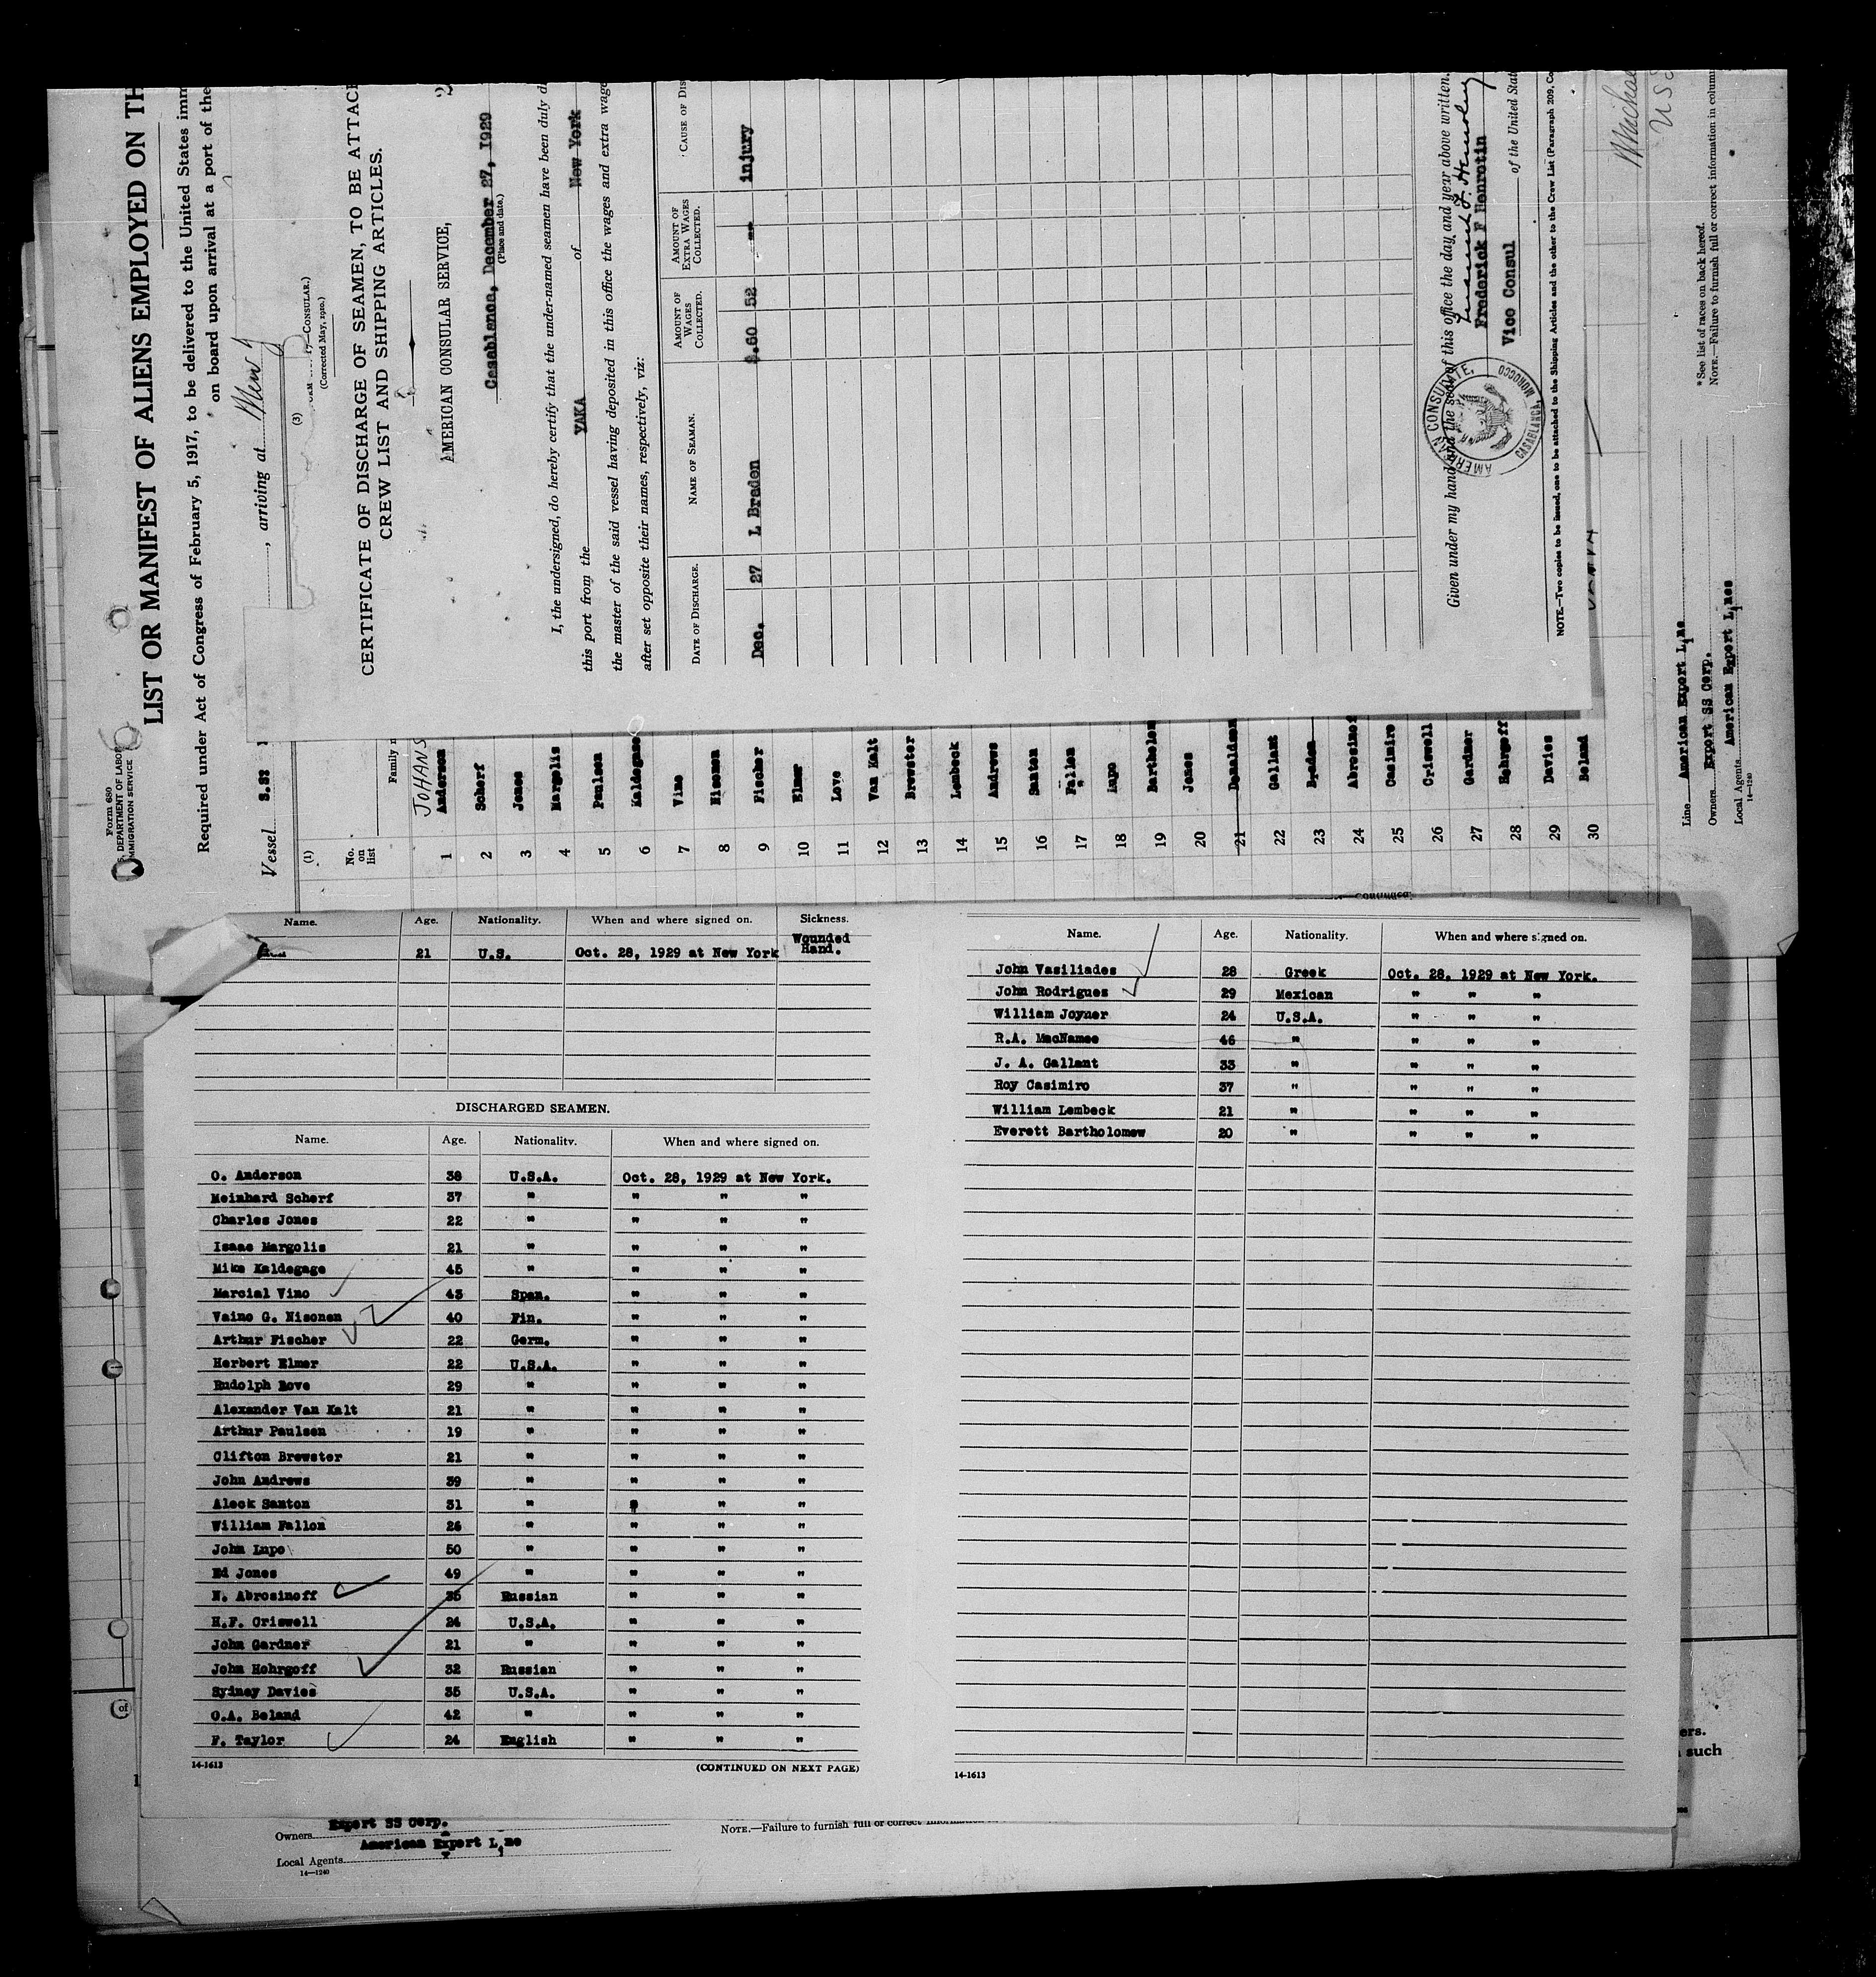 Form 680
U. S. DEPARTMENT OF LABOR
IMMIGRATION SERVICE
LIST OR MANIFEST OF ALIENS EMPLOYED ON TH
Required under Act of Congress of February 5, 1917, to be delivered to the United States imm
on board upon arrival at a port of the
Vessel S.S.
, arriving at New Y
(1)
(3)
No. on list
Family n
JOHANS
1 Anderson
2 Scherf
3 Jones
4 Margolis
5 Paulsen
6 Kaldegage
7 Vino
8 Nisonen
9 Fischer
10 Elmer
11 Love
12 Van Kalt
13 Brewster
14 Lembeck
15 Andrews
16 Santon
17 Fallon
18 Lupo
19 Bartholem
20 Jones
21 Donaldson
22 Gallant
23 Braden
24 Abrosinof
25 Casimiro
26 Criswell
27 Gardner
28 Hohrgoff
29 Davies
30 Beland
Line American Export Line
Owners Export SS Corp.
Local Agents American Export Lines
14—1240
* See list of races on back hereof.
NOTE.—Failure to furnish full or correct information in colum
Michae
(Corrected May, 1920.)
CERTIFICATE OF DISCHARGE OF SEAMEN, TO BE ATTAC
CREW LIST AND SHIPPING ARTICLES.
AMERICAN CONSULAR SERVICE,
Casablanca, December 27, 1929
(Place and date.)
I, the undersigned, do hereby certify that the under-named seamen have been duly d
this port from the YAKA of New York
the master of the said vessel having deposited in this office the wages and extra wage
after set opposite their names, respectively, viz:
DATE OF DISCHARGE. NAME OF SEAMAN. AMOUNT OF WAGES COLLECTED. AMOUNT OF EXTRA WAGES COLLECTED. CAUSE OF DIS
Dec. 27 L Braden $.60 52 -- injury
Given under my hand and the seal of this office the day and year above written.
Frederick F Henrotin
Vice Consul of the United Stat
AMERICAN CONSULATE, CASABLANCA, MOROCCO
NOTE.—Two copies to be issued, one to be attached to the Shipping Articles and the other to the Crew List (Paragraph 209, Co
Name. Age. Nationality. When and where signed on. Sickness.
21 U.S. Oct. 28, 1929 at New York Wounded Hand.
DISCHARGED SEAMEN.
Name. Age. Nationality. When and where signed on.
O. Anderson 38 U.S.A. Oct. 28, 1929 at New York.
Meinhard Scherf 37 " " " "
Charles Jones 22 " " " "
Isaac Margolis 21 " " " "
Mike Kaldegage 45 " " " "
Marcial Vino 43 Span. " " "
Vaino G. Nisonen 40 Fin. " " "
Arthur Fischer 22 Germ. " " "
Herbert Elmer 22 U.S.A. " " "
Rudolph Love 29 " " " "
Alexander Van Kalt 21 " " " "
Arthur Paulsen 19 " " " "
Clifton Brewster 21 " " " "
John Andrews 39 " " " "
Aleck Santon 31 " " " "
William Fallon 26 " " " "
John Lupo 50 " " " "
Ed Jones 49 " " " "
N. Abrosinoff 36 Russian " " "
H.F. Criswell 24 U.S.A. " " "
John Gardner 21 " " " "
John Hohrgoff 32 Russian " " "
Sydney Davies 35 U.S.A. " " "
O.A. Beland 42 " " " "
F. Taylor 24 English " " "
14-1613
(CONTINUED ON NEXT PAGE)
Name. Age. Nationality. When and where signed on.
John Vasiliades 28 Greek Oct. 28, 1929 at New York.
John Rodrigues 29 Mexican " " "
William Joyner 24 U.S.A. " " "
R.A. MacNamee 46 " " " "
J. A. Gallant 33 " " " "
Roy Casimiro 37 " " " "
William Lembeck 21 " " " "
Everett Bartholomew 20 " " " "
14-1613
Owners Export SS Corp.
Local Agents American Export Line
14—1240
NOTE.—Failure to furnish full or correct
ers.
such